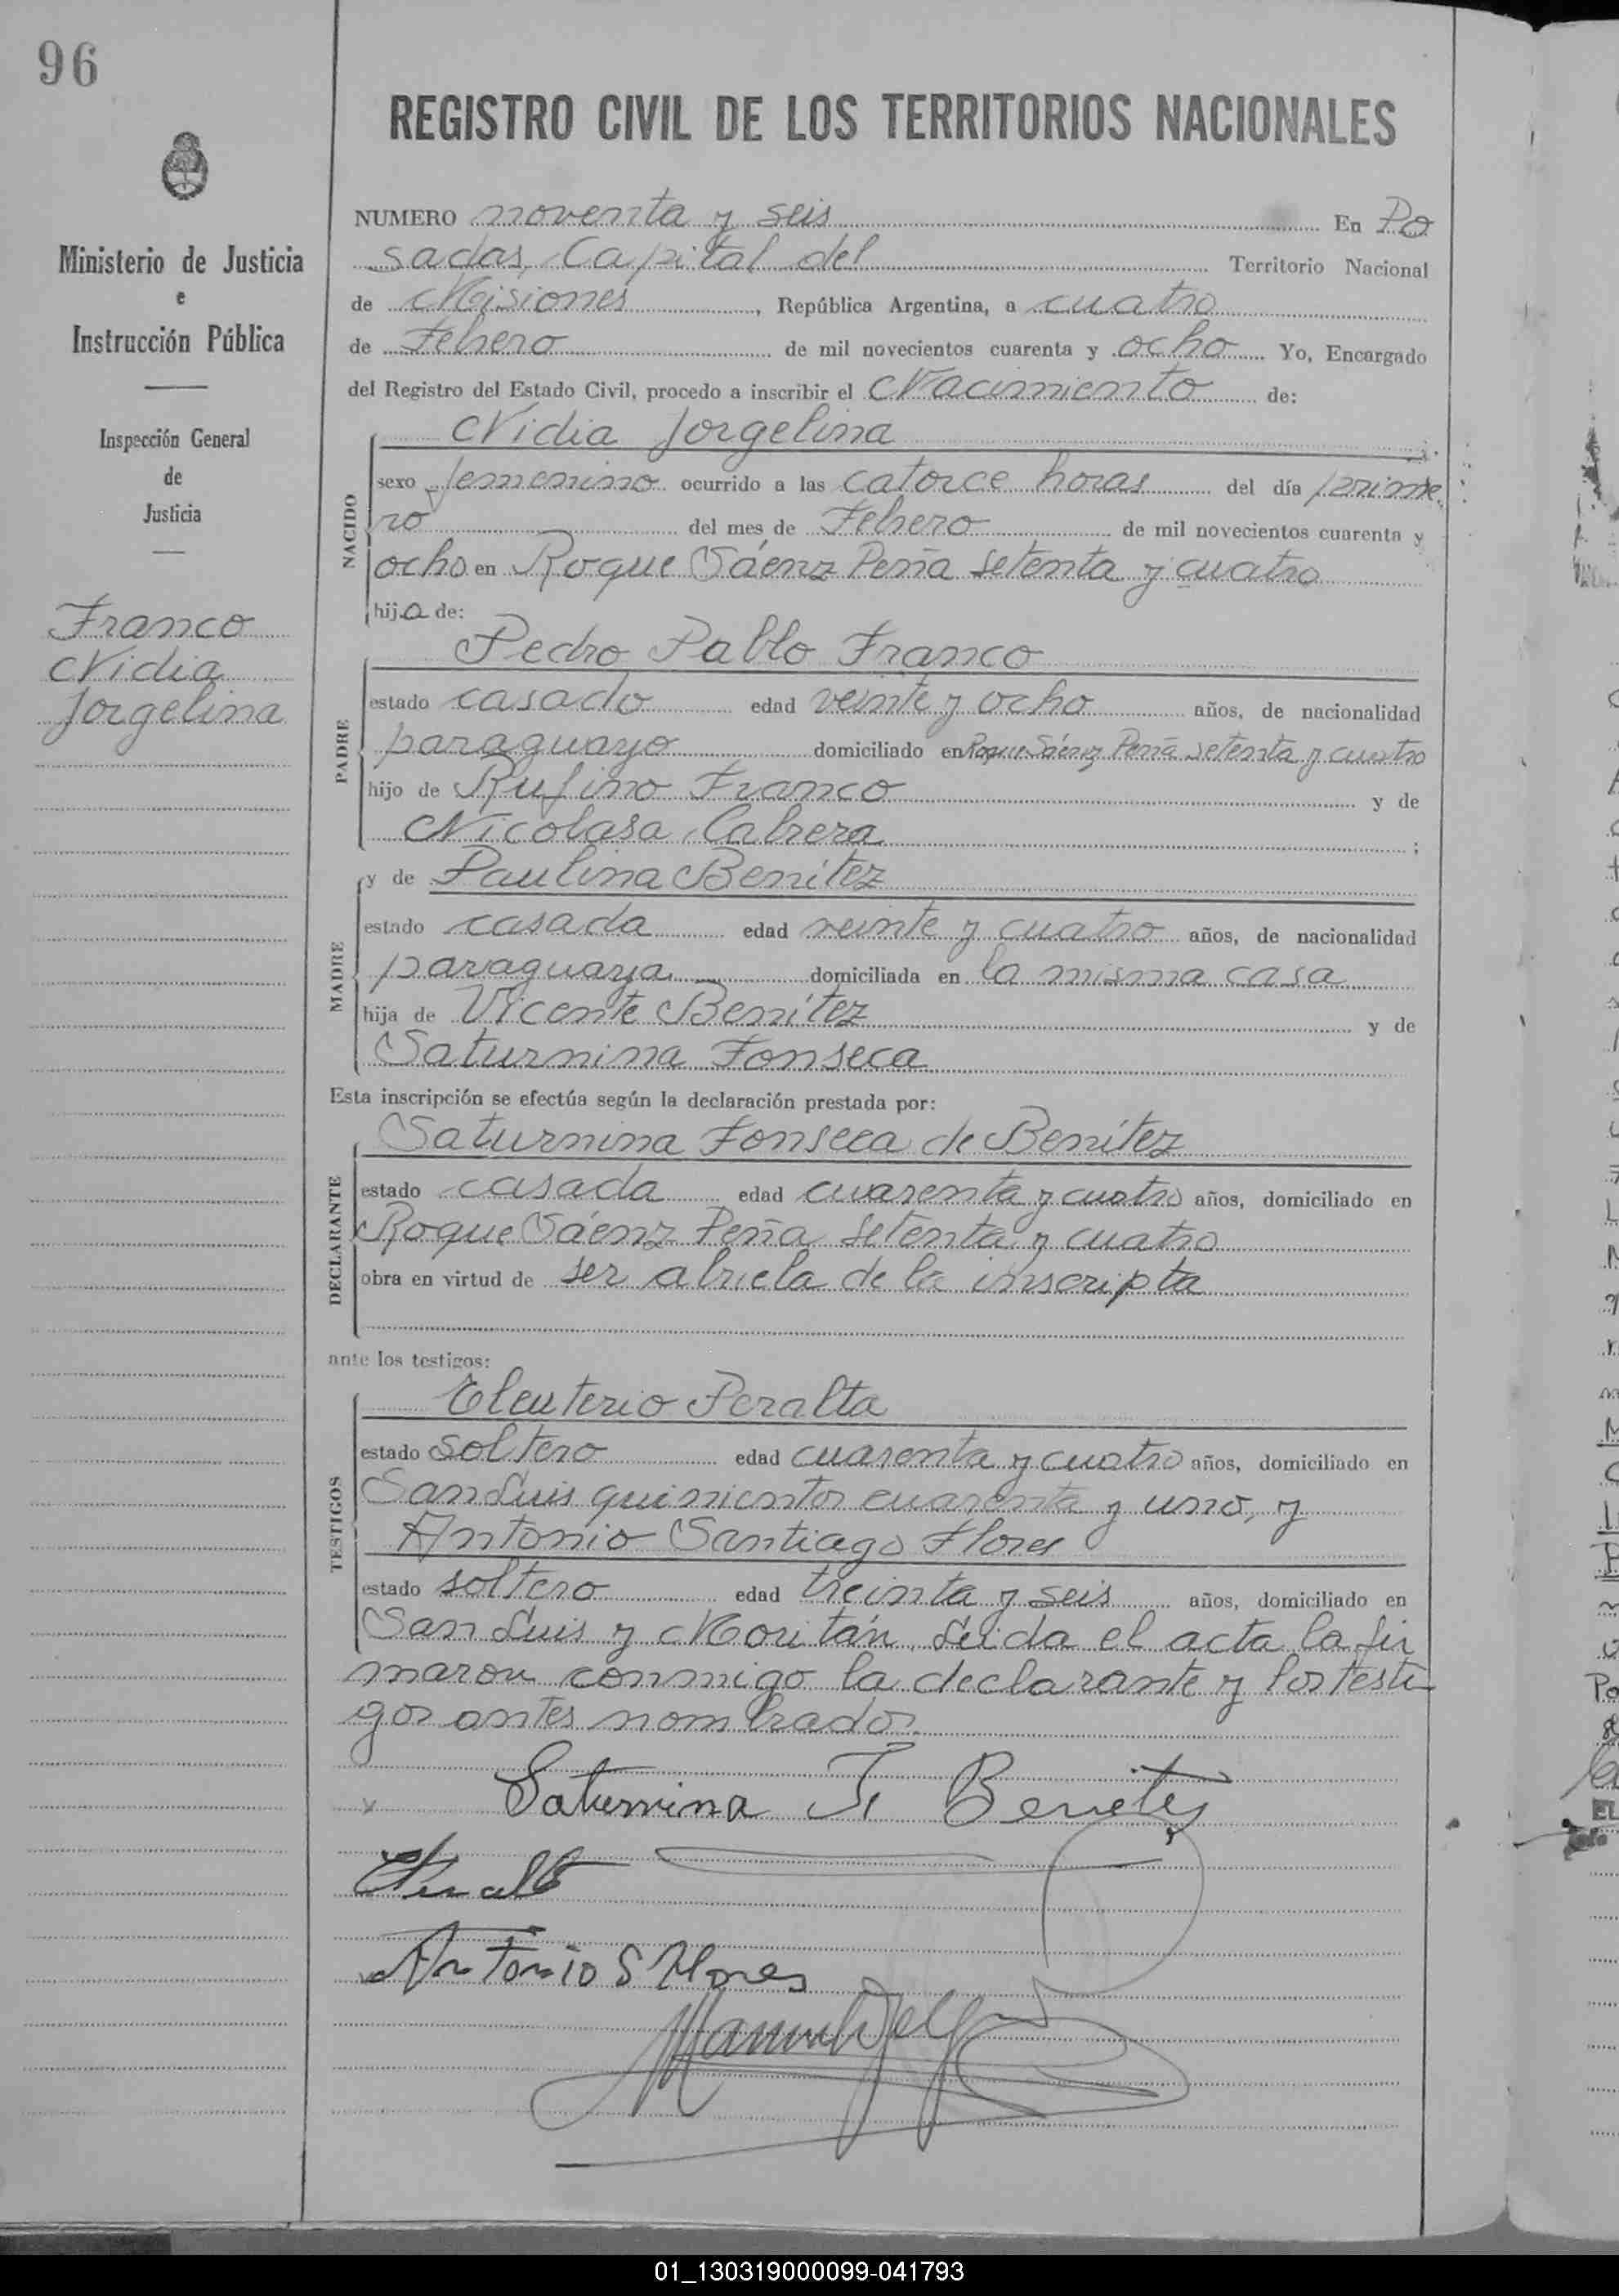 96
REGISTRO CIVIL DE LOS TERRITORIOS NACIONALES
Ministerio de Justicia
e
Instrucción Pública
Inspección General
de
Justicia
Franco
Nidia
Jorgelina
NUMERO noventa y seis En Po
sadas, Capital del Territorio Nacional
de Misiones, República Argentina, a cuatro
de Febrero de mil novecientos cuarenta y ocho Yo, Encargado
del Registro del Estado Civil, procedo a inscribir el Nacimiento de:
Nidia Jorgelina
NACIDO
sexo femenino ocurrido a las catorce horas del día prime
ro del mes de Febrero de mil novecientos cuarenta y
ocho en Roque Sáenz Peña setenta y cuatro
hija de:
Pedro Pablo Franco
PADRE
estado casado edad veinte y ocho años, de nacionalidad
paraguayo domiciliado en Roque Sáenz Peña setenta y cuatro
hijo de Rufino Franco y de
Nicolasa Cabrera;
y de Paulina Benítez
MADRE
estado casada edad veinte y cuatro años, de nacionalidad
paraguaya domiciliada en la misma casa
hija de Vicente Benítez y de
Saturnina Fonseca
Esta inscripción se efectúa según la declaración prestada por:
Saturnina Fonseca de Benítez
DECLARANTE
estado casada edad cuarenta y cuatro años, domiciliado en
Roque Sáenz Peña setenta y cuatro
obra en virtud de ser abuela de la inscripta
ante los testigos:
Eleuterio Peralta
TESTIGOS
estado soltero edad cuarenta y cuatro años, domiciliado en
San Luis quinientos cuarenta y uno, y
Antonio Santiago Flores
estado soltero edad treinta y seis años, domiciliado en
San Luis y Moritán. Leida el acta la fir
maron conmigo la declarante y los testi-
gos antes nombrados.
Saturnina F Benitez
EPeralta
Antonio S Flores
01_130319000099-041793